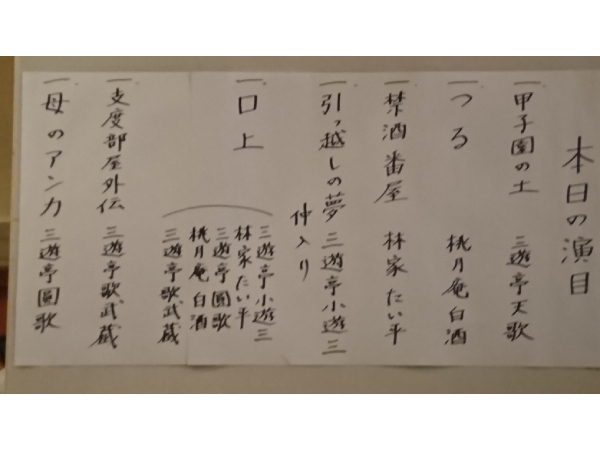 本日の演目
一 甲子園の土 三遊亭天歌
一 つる 桃月庵白酒
一 禁酒番屋 林家たい平
一 引っ越しの夢 三遊亭小遊三
仲入り
一 口上
三遊亭小遊三
林家たい平
三遊亭圓歌
桃月庵白酒
三遊亭歌武蔵
一 支度部屋外伝 三遊亭歌武蔵
一 母のアンカ 三遊亭圓歌